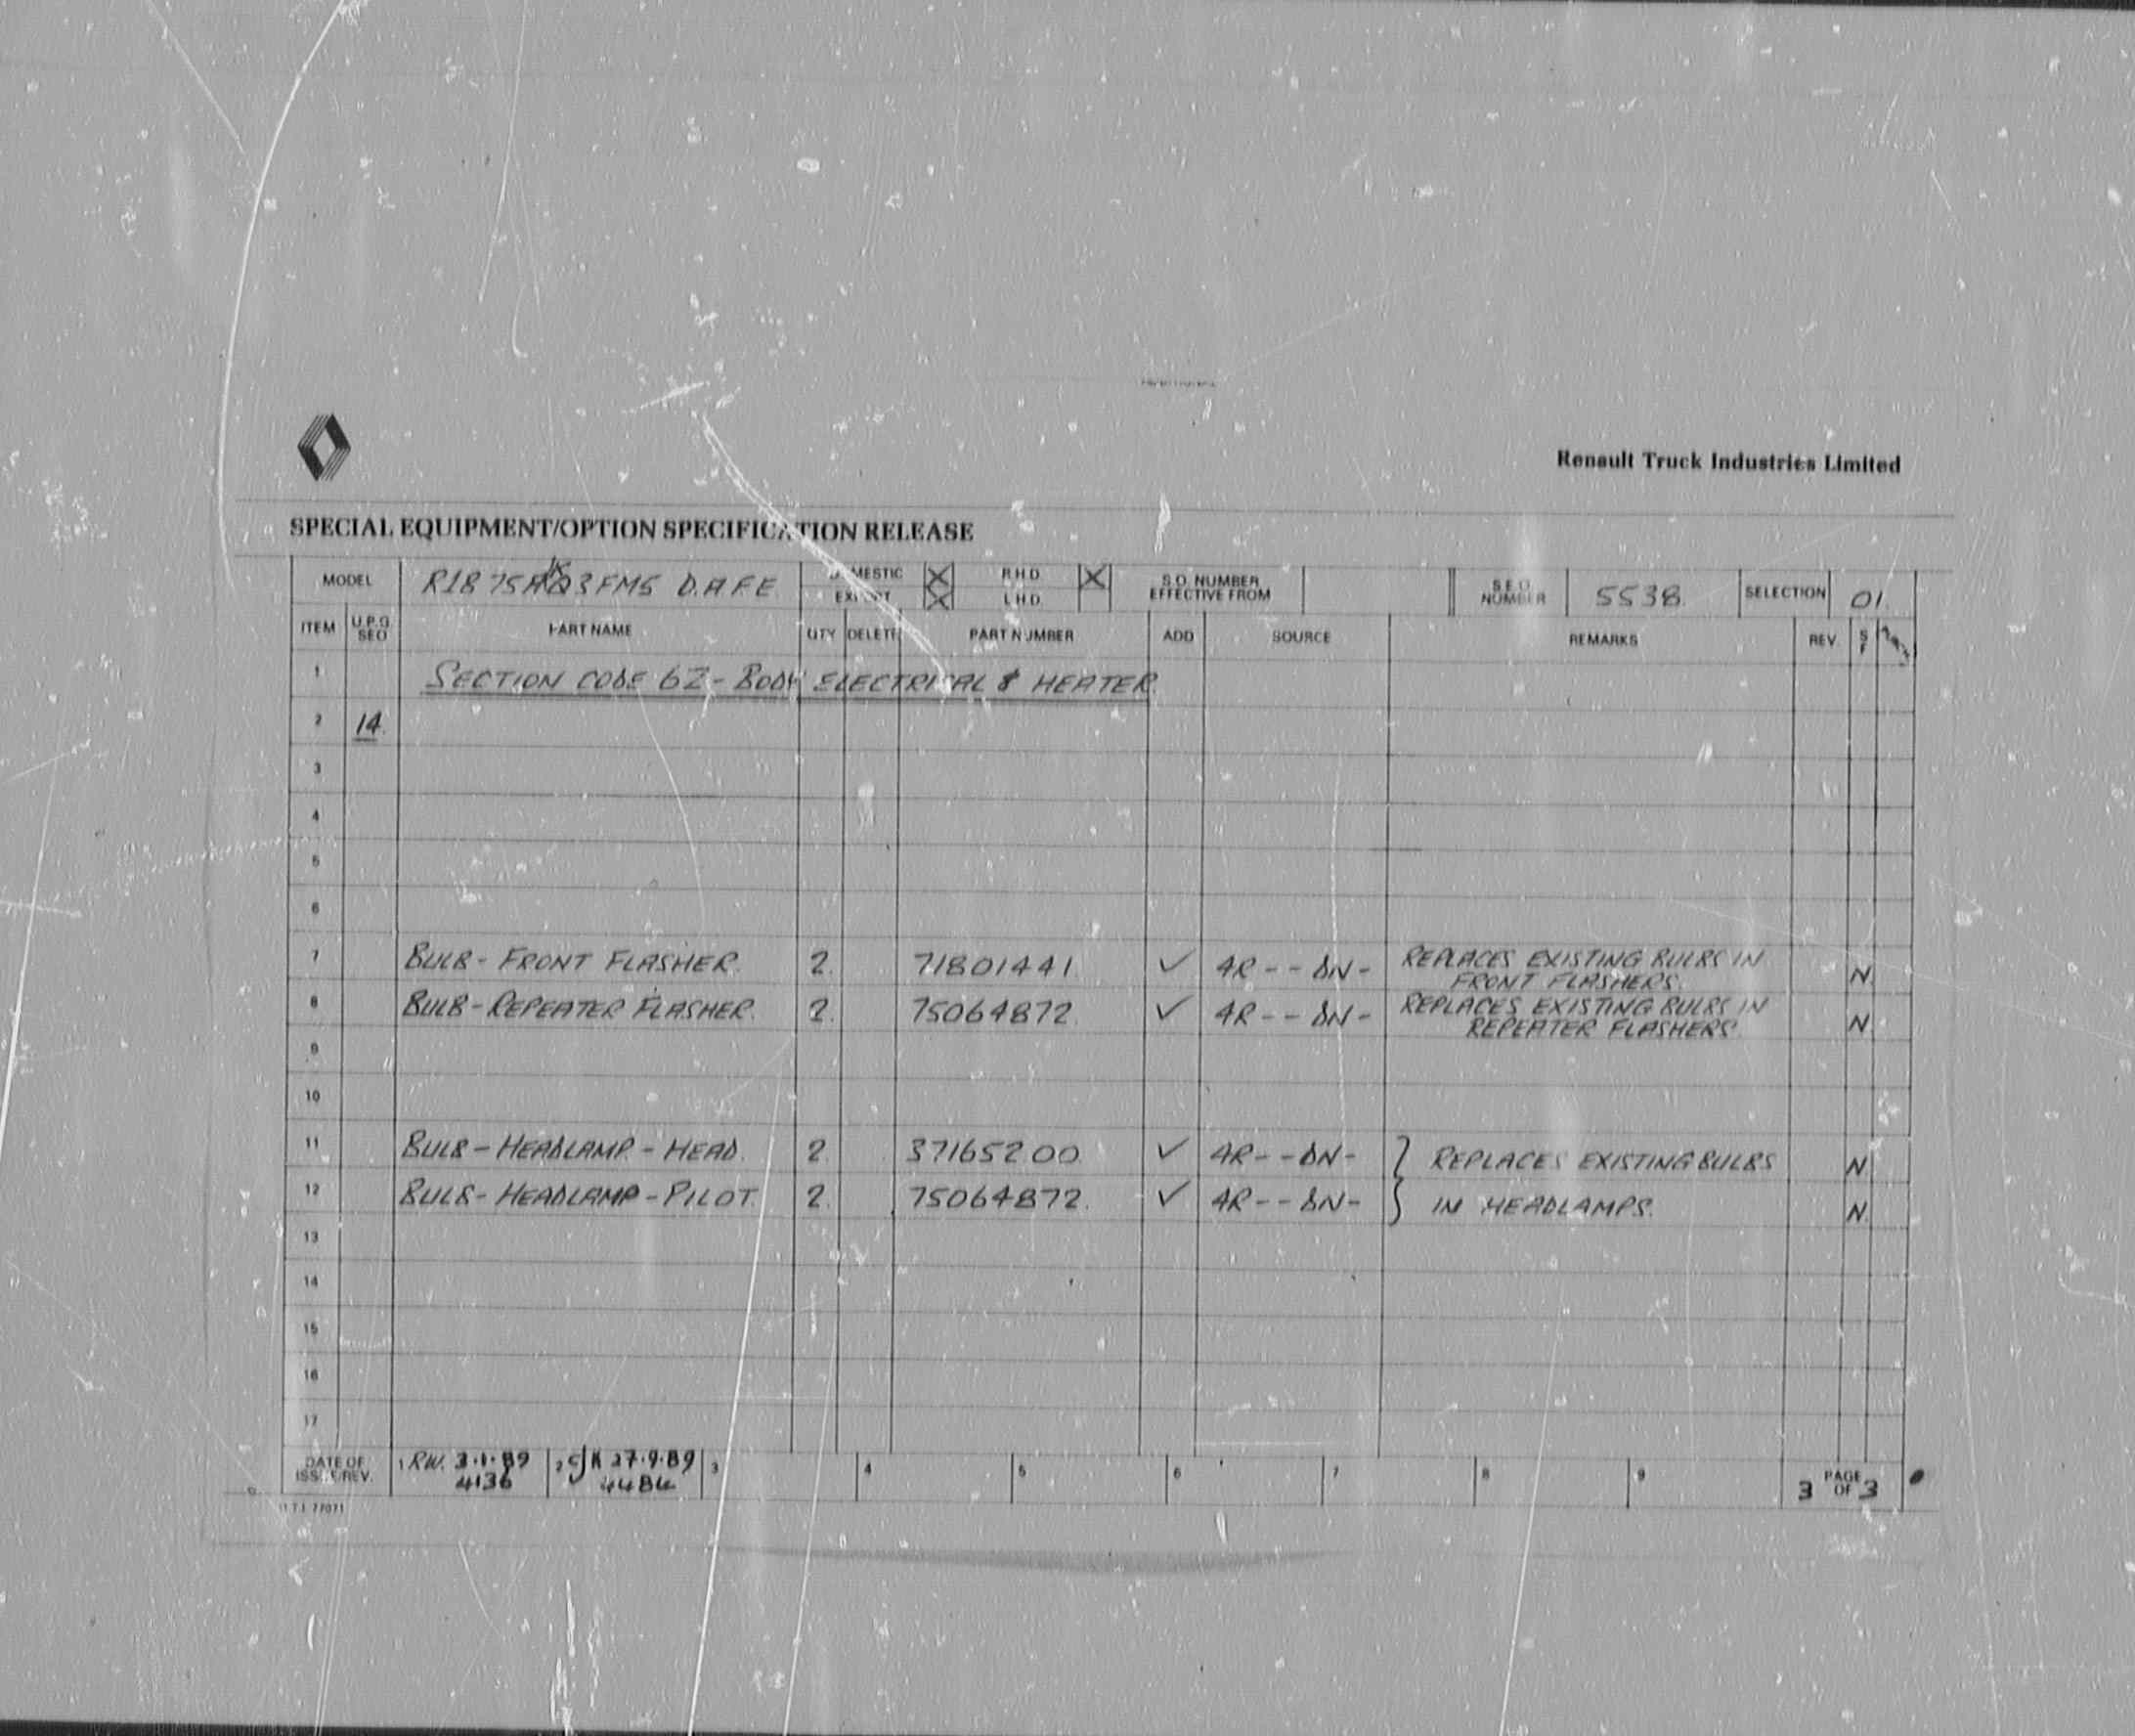 Renault Truck Industries Limited
SPECIAL EQUIPMENT/OPTION SPECIFICATION RELEASE
MODEL DOMESTIC R.H.D S.O. NUMBER EFFECTIVE FROM S.E.O. NUMBER 5538 SELECTION 01
EXPORT L.H.D.
ITEM U.P.G. SEQ PART NAME QTY DELETE PART NUMBER ADD SOURCE REMARKS REV. S F
1 SECTION CODE 6Z - BODY ELECTRICAL & HEATER
2 14
3
4
5
6
7 BULB - FRONT FLASHER. 2. 71801441 ✓ 4R - - DN - REPLACES EXISTING BULBS IN FRONT FLASHERS. N
8 BULB - REPEATER FLASHER. 2. 75064872 ✓ 4R - - DN - REPLACES EXISTING BULBS IN REPEATER FLASHERS. N
9
10
11 BULB - HEADLAMP - HEAD. 2 37165200 ✓ 4R - - DN - } REPLACES EXISTING BULBS N
12 BULB - HEADLAMP - PILOT. 2. 75064872. ✓ 4R - - DN - } IN HEADLAMPS. N
13
14
15
16
17
DATE OF ISSUE/REV. 1 RW. 3.1.89 2 27.9.89 3 4 5 6 7 8 9 3 PAGE OF 3
4136
77071